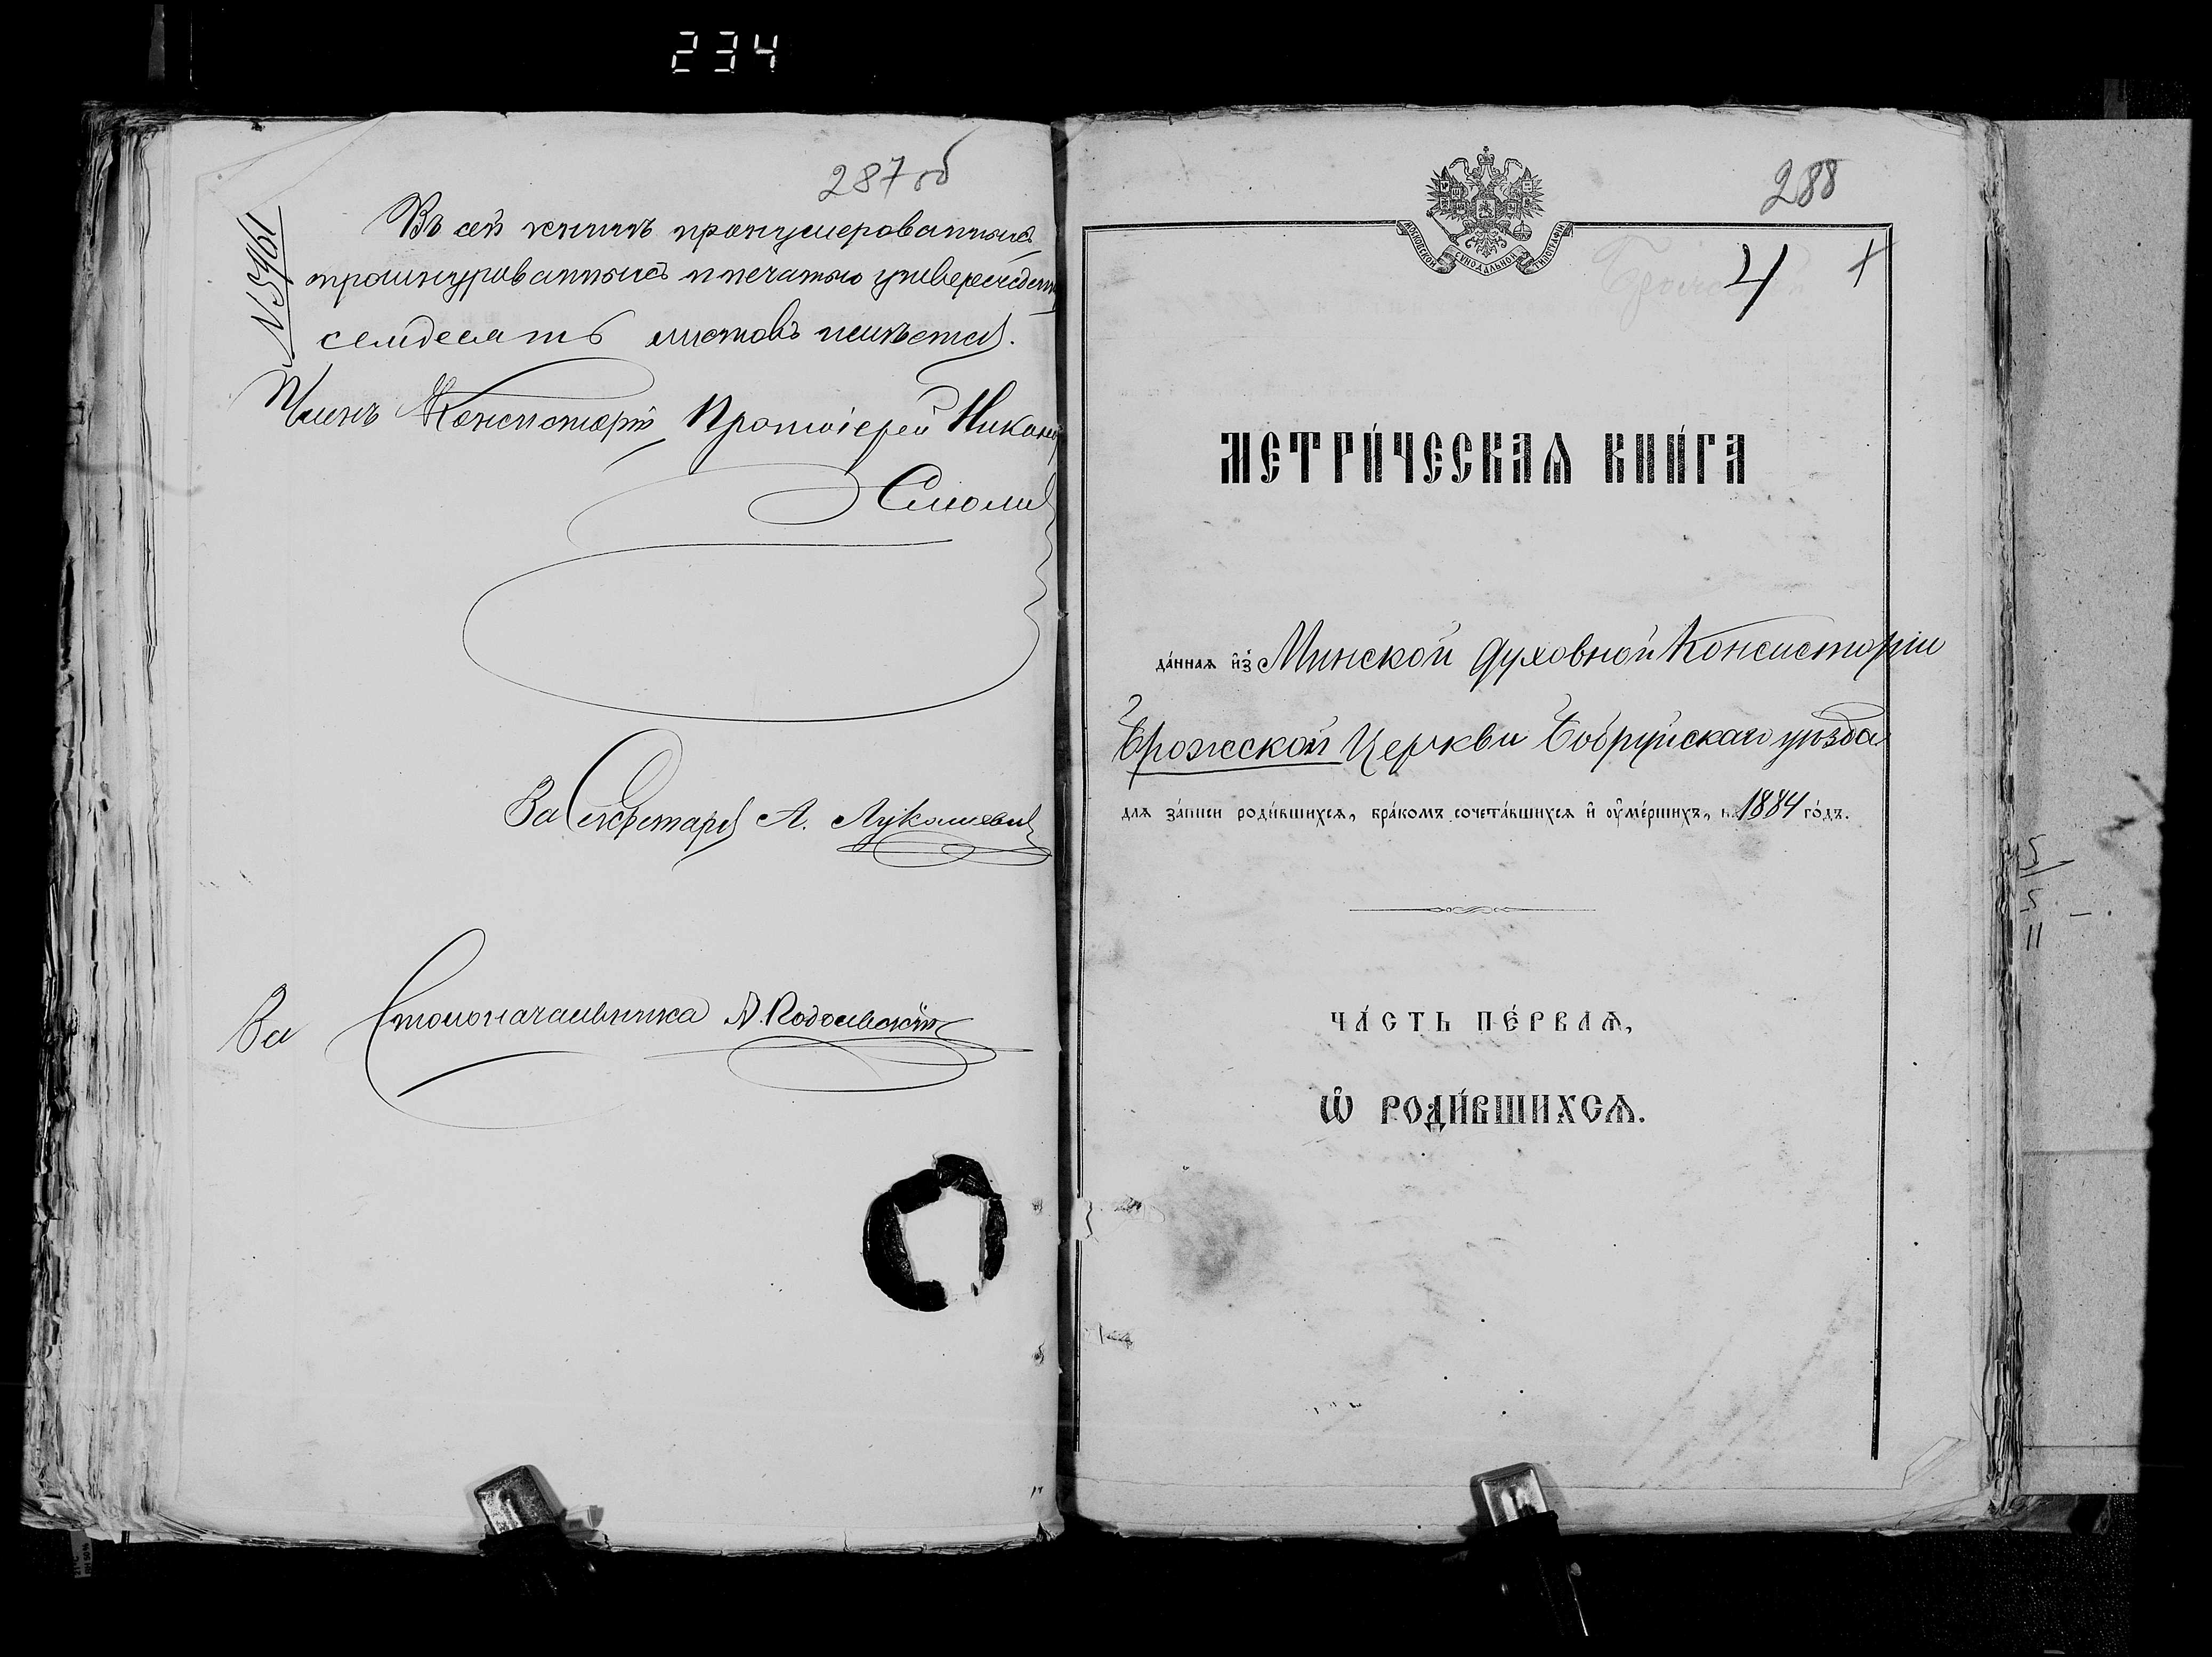 234
287 об
№ 5961
Въ сей книгѣ пронумерованныхъ
прошнурованныхъ и печатью утвержден
семдесятъ листовъ имѣется.
Членъ Консисторіи Протоіерей Никан
Смоли
За Секретаря А. Лукашеви
За Столоначальника А.
288
МОСКОВСКОЙ СѴНОДАЛЬНОЙ ТИПОГРАФІИ
4 +
МЕТРИ́ЧЕСКАѦ КНИ́ГА
да́ннаѧ и҆з̾ Минской Духовной Консисторіи
Брожской Церкви Бобруйскаго уѣзда
длѧ за́писи роди́вшихсѧ, бра́комъ сочета́вшихсѧ и҆ ᲂу҆ме́ршихъ, н. 1884 го́дъ.
ЧА́СТЬ ПЕ́РВАѦ,
Ѽ РОДИ́ВШИХСѦ.
5
5
11